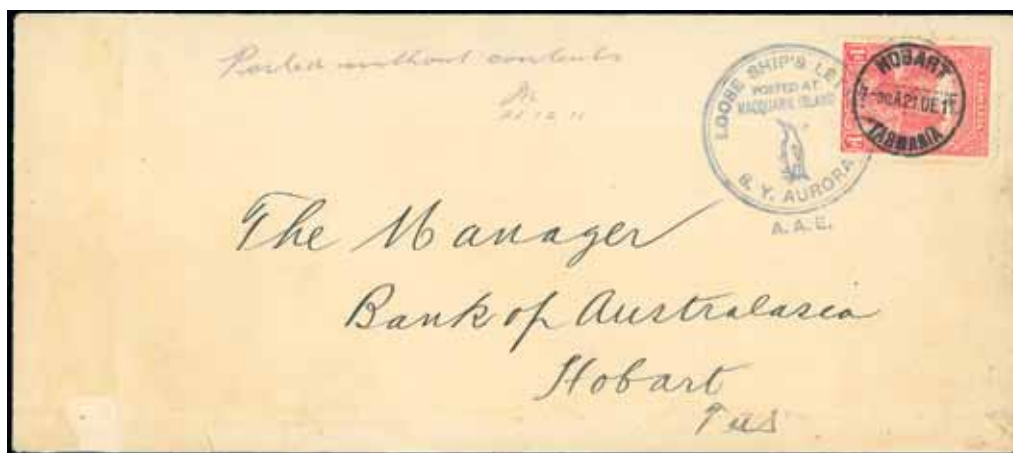 Posted without contents
LOOSE SHIP'S LET
POSTED AT
MACQUARIE ISLAND
S. Y. AURORA
A. A. E.
HOBART
21 DE 11
TASMANIA
The Manager
Bank of Australasia
Hobart
Tas